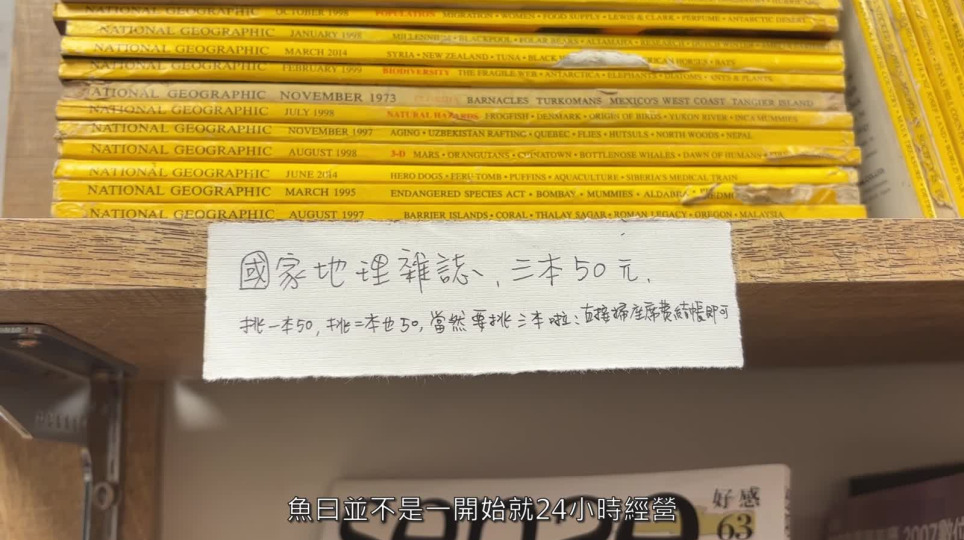 NATIONAL GEOGRAPHIC OCTOBER 1998 POPULATION MIGRATION • WOMEN • FOOD SUPPLY • LEWIS & CLARK • PERFUME • ANTARCTIC DESERT
NATIONAL GEOGRAPHIC JANUARY 1998 MILLENNIUM • BLACKPOOL • POLAR BEARS • ALTAMAHA
NATIONAL GEOGRAPHIC MARCH 2014 SYRIA • NEW ZEALAND • TUNA • BLACK BATS
NATIONAL GEOGRAPHIC FEBRUARY 1999 BIODIVERSITY THE FRAGILE WEB • ANTARCTICA • ELEPHANTS • DIATOMS • ANTS & PLANTS
NATIONAL GEOGRAPHIC NOVEMBER 1973 BARNACLES TURKOMANS MEXICO'S WEST COAST TANGIER ISLAND
NATIONAL GEOGRAPHIC JULY 1998 NATURAL HAZARDS FROGFISH • DENMARK • ORIGIN OF BIRDS • YUKON RIVER • INCA MUMMIES
NATIONAL GEOGRAPHIC NOVEMBER 1997 AGING • UZBEKISTAN RAFTING • QUEBEC • FLIES • HUTSULS • NORTH WOODS • NEPAL
NATIONAL GEOGRAPHIC AUGUST 1998 3-D MARS • ORANGUTANS • CHINATOWN • BOTTLENOSE WHALES • DAWN OF HUMANS
NATIONAL GEOGRAPHIC JUNE 2014 HERO DOGS • PERU TOMB • PUFFINS • AQUACULTURE • SIBERIA'S MEDICAL TRAIN
NATIONAL GEOGRAPHIC MARCH 1995 ENDANGERED SPECIES ACT • BOMBAY • MUMMIES • ALDABRA
NATIONAL GEOGRAPHIC AUGUST 1997 BARRIER ISLANDS • CORAL • THALAY SAGAR • ROMAN LEGACY • OREGON • MALAYSIA
國家地理雜誌、三本50元.
挑一本50,挑二本也50,當然要挑三本啦:直接掃座席費結帳即可
好感
63
2007
魚曰並不是一開始就24小時經營